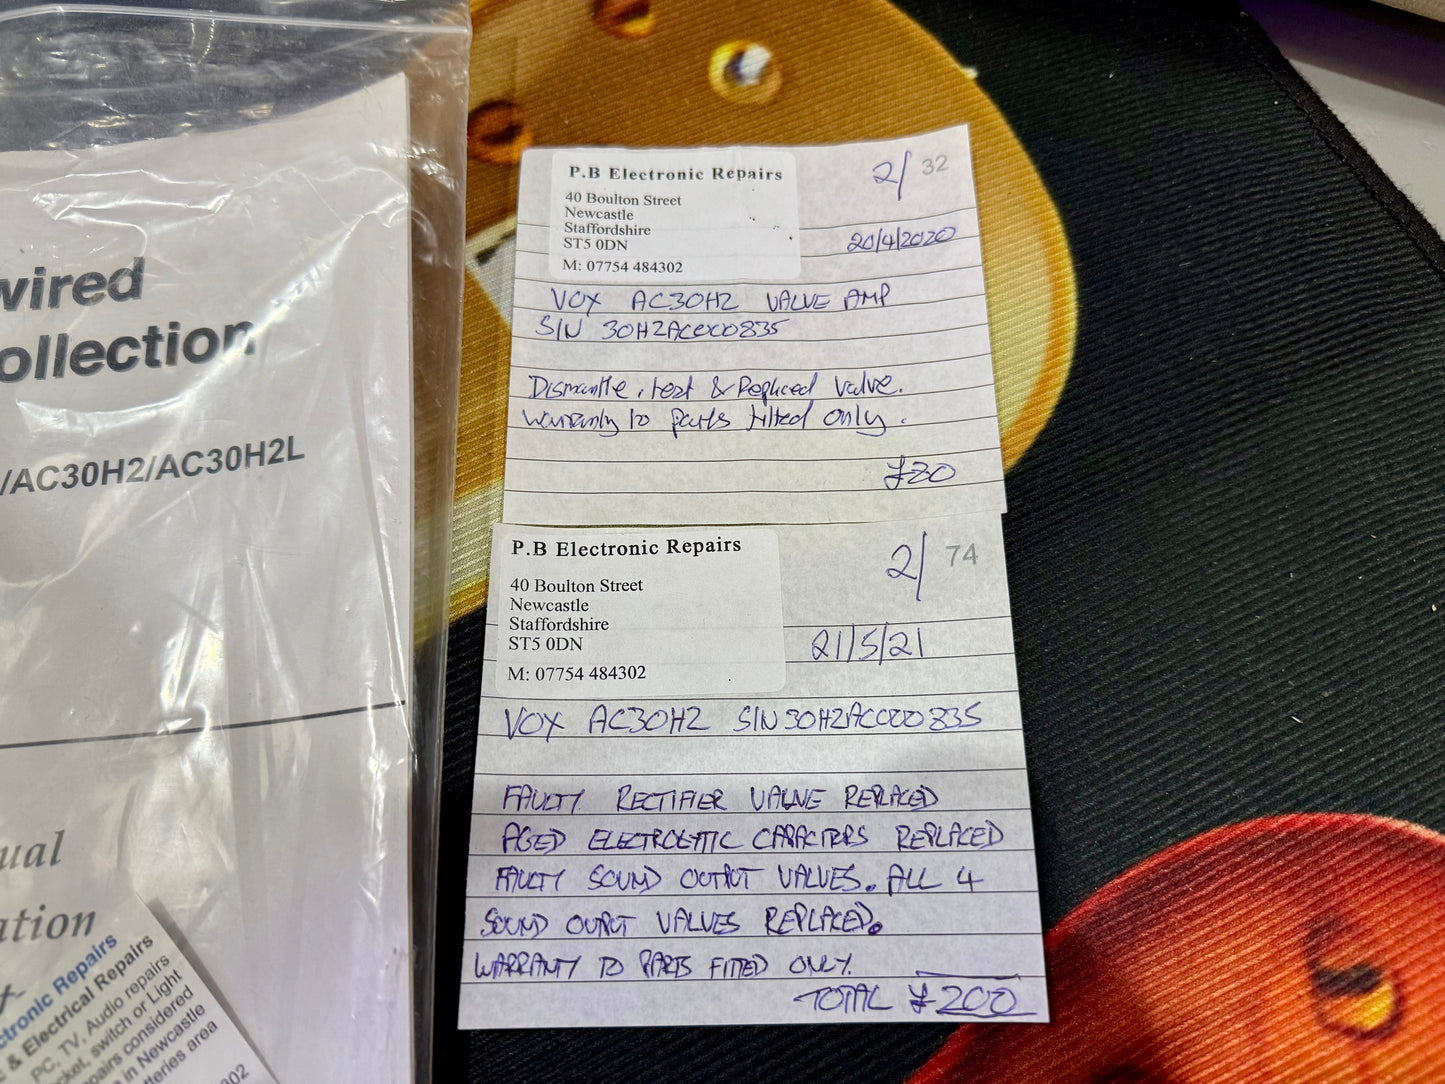 wired
ollection
/AC30H2/AC30H2L
ual
ation
ctronic Repairs
c & Electrical Repairs
PC, TV, Audio repairs
cket, switch or Light
epairs considered
in Newcastle
tteries area
302
P.B Electronic Repairs
40 Boulton Street
Newcastle
Staffordshire
ST5 0DN
M: 07754 484302
2/ 32
20/4/2020
VOX AC30H2 VALVE AMP
S/N 30H2AC000835
Dismantle, test & Replaced valve.
Warranty to parts fitted only.
£20
P.B Electronic Repairs
40 Boulton Street
Newcastle
Staffordshire
ST5 0DN
M: 07754 484302
2/ 74
21/5/21
VOX AC30H2 S/N 30H2AC000835
FAULTY RECTIFIER VALVE REPLACED
AGED ELECTROLYTIC CAPACITERS REPLACED
FAULTY SOUND OUTPUT VALVES. ALL 4
SOUND OUTPUT VALVES REPLACED.
WARRANTY TO PARTS FITTED ONLY.
TOTAL £200